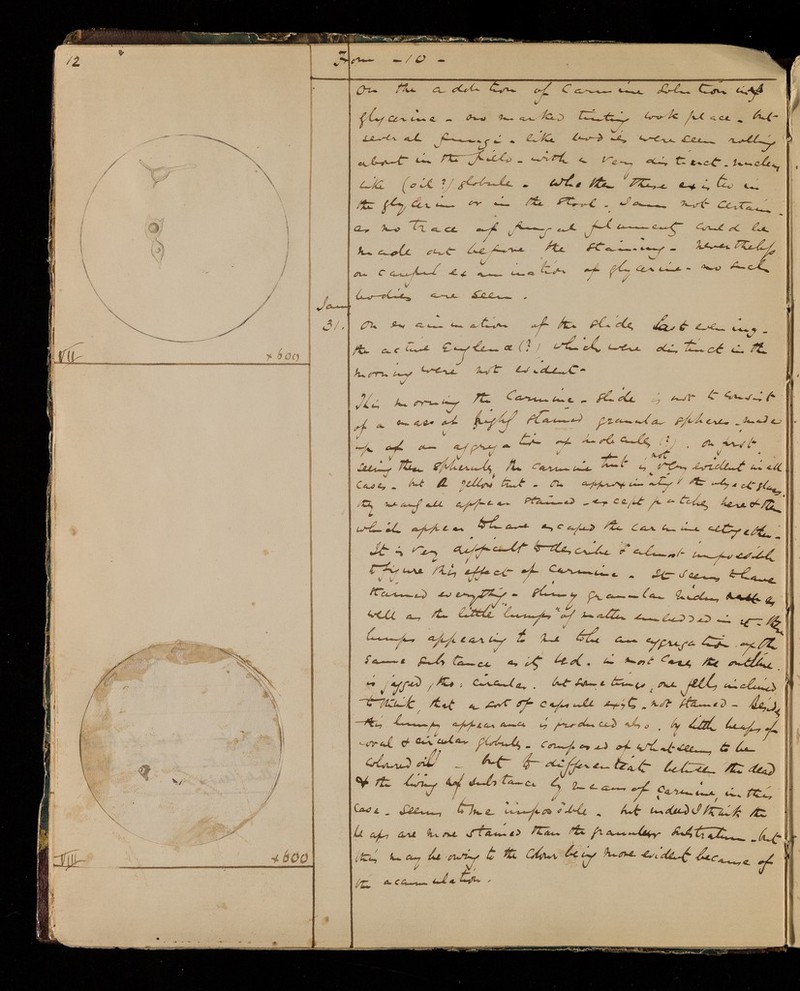 12
From - 10 -
On the addition of Carmine Solution with
glycerine - one marked tinting took place - but
several fungi - like bodies were seen rolling
about in the field - with a very distinct, nuclei
like (oil?) globule - whether these existed in
the glycerine or in the Stool - I am not certain -
as no trace of fungal filaments could be
made out before the staining - Nevertheless
on careful examination of glycerine - no such
bodies are seen .
Jan
31. On examination of the slide, last evening -
the active Euglena (?) which were distinct in the
morning were not evident -
This morning the Carmine - slide is, seen to consist
of a mass of highly stained granular spheres - made
up of an aggregation of molecules (?) . On first
seeing these spherules, the carmine tint is not very evident in all
cases, - but a yellow tint - On approximating the object glass
they nearly all appear stained - except patches, here & there
which appear to have escaped the carmine altogether -
It is very difficult to describe & almost impossible
to figure this effect of Carmine . It seems to have
stained everything - slimy granular
well as the little "lumps" of matter embedded in it - The
lumps appearing to me to be an aggregation of the
same substance as its bed . in most cases, the outline
is jagged, tho', circular . but sometimes, one feels inclined
to think, that a sort of capsule exists, not stained - Besides
this lumpy appearance is produced also, by little heaps of
oval & circular globules - composed of what seems to be
coloured oil - but to differentiate between the dead
& the living substance by means of Carmine, in this
case - seems to me impossible - but indeed I think the
heaps are more stained than the granular substratum - but
this may be owing to the colour being more evident because of
the accumulation .
VII × 600
VIII × 600